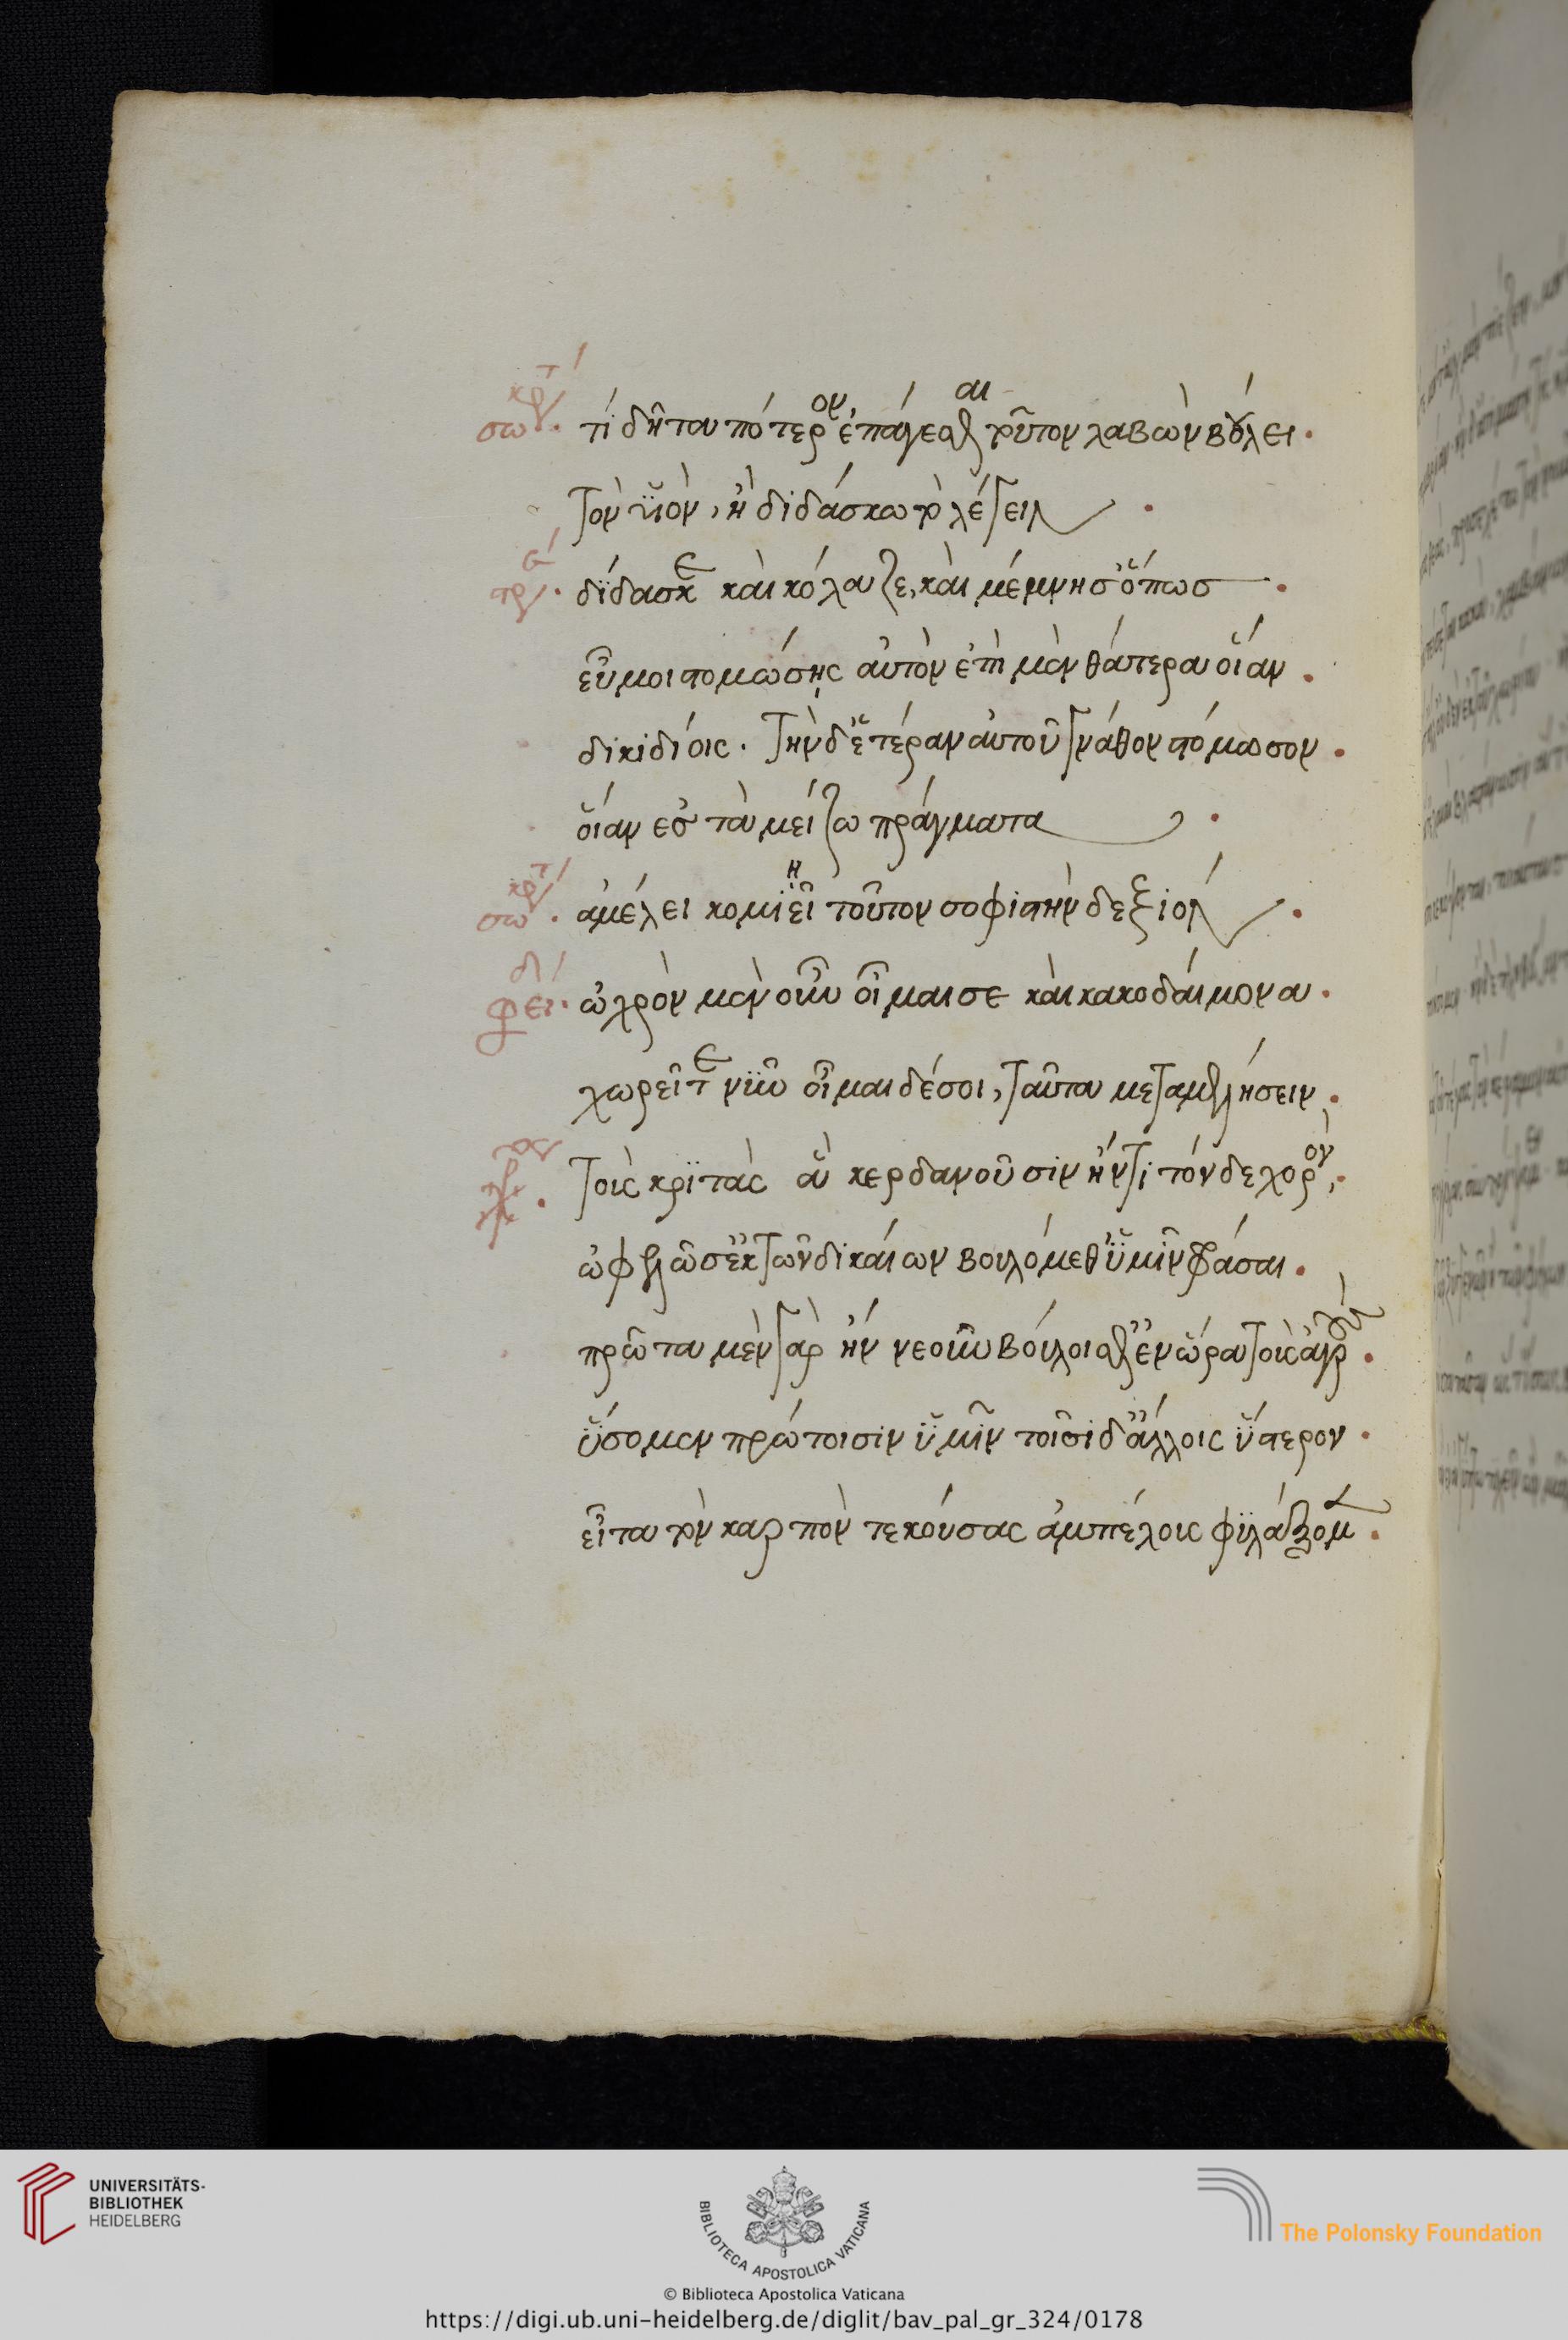 σωκρτ. τί δῆτα πότερον ἐπάγεσθαι τοῦτον λαβὼν βούλει.
τὸν υἱὸν, ἢ διδάσκω τὸ λέγειν.
στρ. δίδασκε καὶ κόλαζε, καὶ μέμνησ' ὅπως.
εὖ μοι στομώσῃς αὐτὸν ἐπὶ μὲν θάτερα οἵαν.
δικιδίοις. τὴν δ' ἑτέραν αὐτοῦ γνάθον στόμωσον.
οἵαν ἐσ τὰ μείζω πράγματα.
σωκρτ. ἀμέλει κομιεῖ τοῦτον σοφιστὴν δεξιόν.
φειδ. ὠχρὸν μὲν οὖν οἶμαι σε καὶ κακοδαίμονα.
χωρεῖτε νῦν οἶμαι δέ σοι, ταῦτα μεταμελήσειν.
χορ. τοὺς κριτὰς ἃ κερδανοῦσιν ἤν τι τόνδε χορὸν,.
ὠφελῶσ' ἐκ τῶν δικαίων βουλόμεθ' ὑμῖν φράσαι.
πρῶτα μὲν γὰρ ἢν νεοῦν βούλοισθ' ἐν ὥρα τοὺς ἀγροὺς.
ὕσομεν πρώτοισιν ὑμῖν τοῖσι δ' ἄλλοις ὕστερον.
εἶτα τὸν καρπὸν τεκούσας ἀμπέλους φυλάξομεν.
UNIVERSITÄTS-
BIBLIOTHEK
HEIDELBERG
BIBLIOTECA APOSTOLICA VATICANA
The Polonsky Foundation
© Biblioteca Apostolica Vaticana
https://digi.ub.uni-heidelberg.de/diglit/bav_pal_gr_324/0178